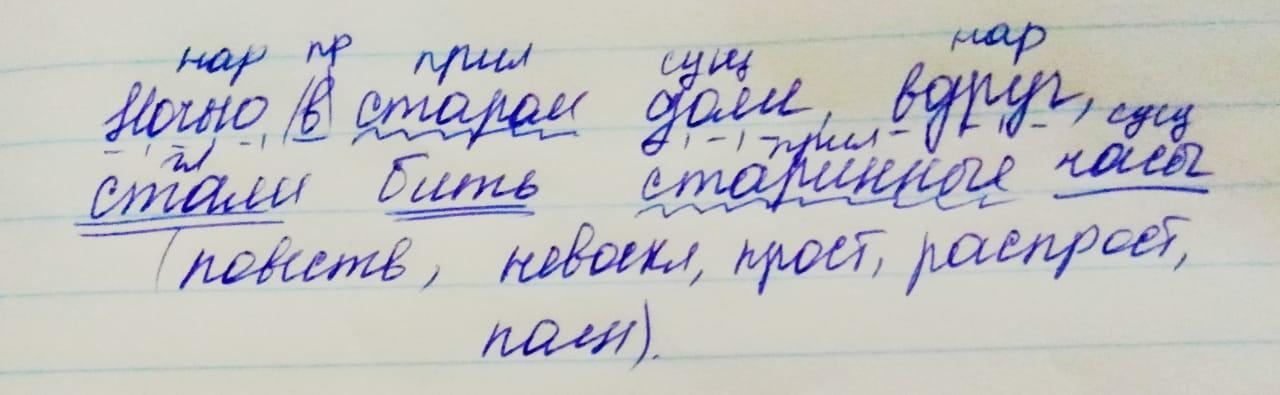 нар пр прил сущ нар
Ночью, в старом доме, вдруг,
гл прил сущ
стали бить старинные часы
(повеств, невоскл, прост, распрост,
полн).